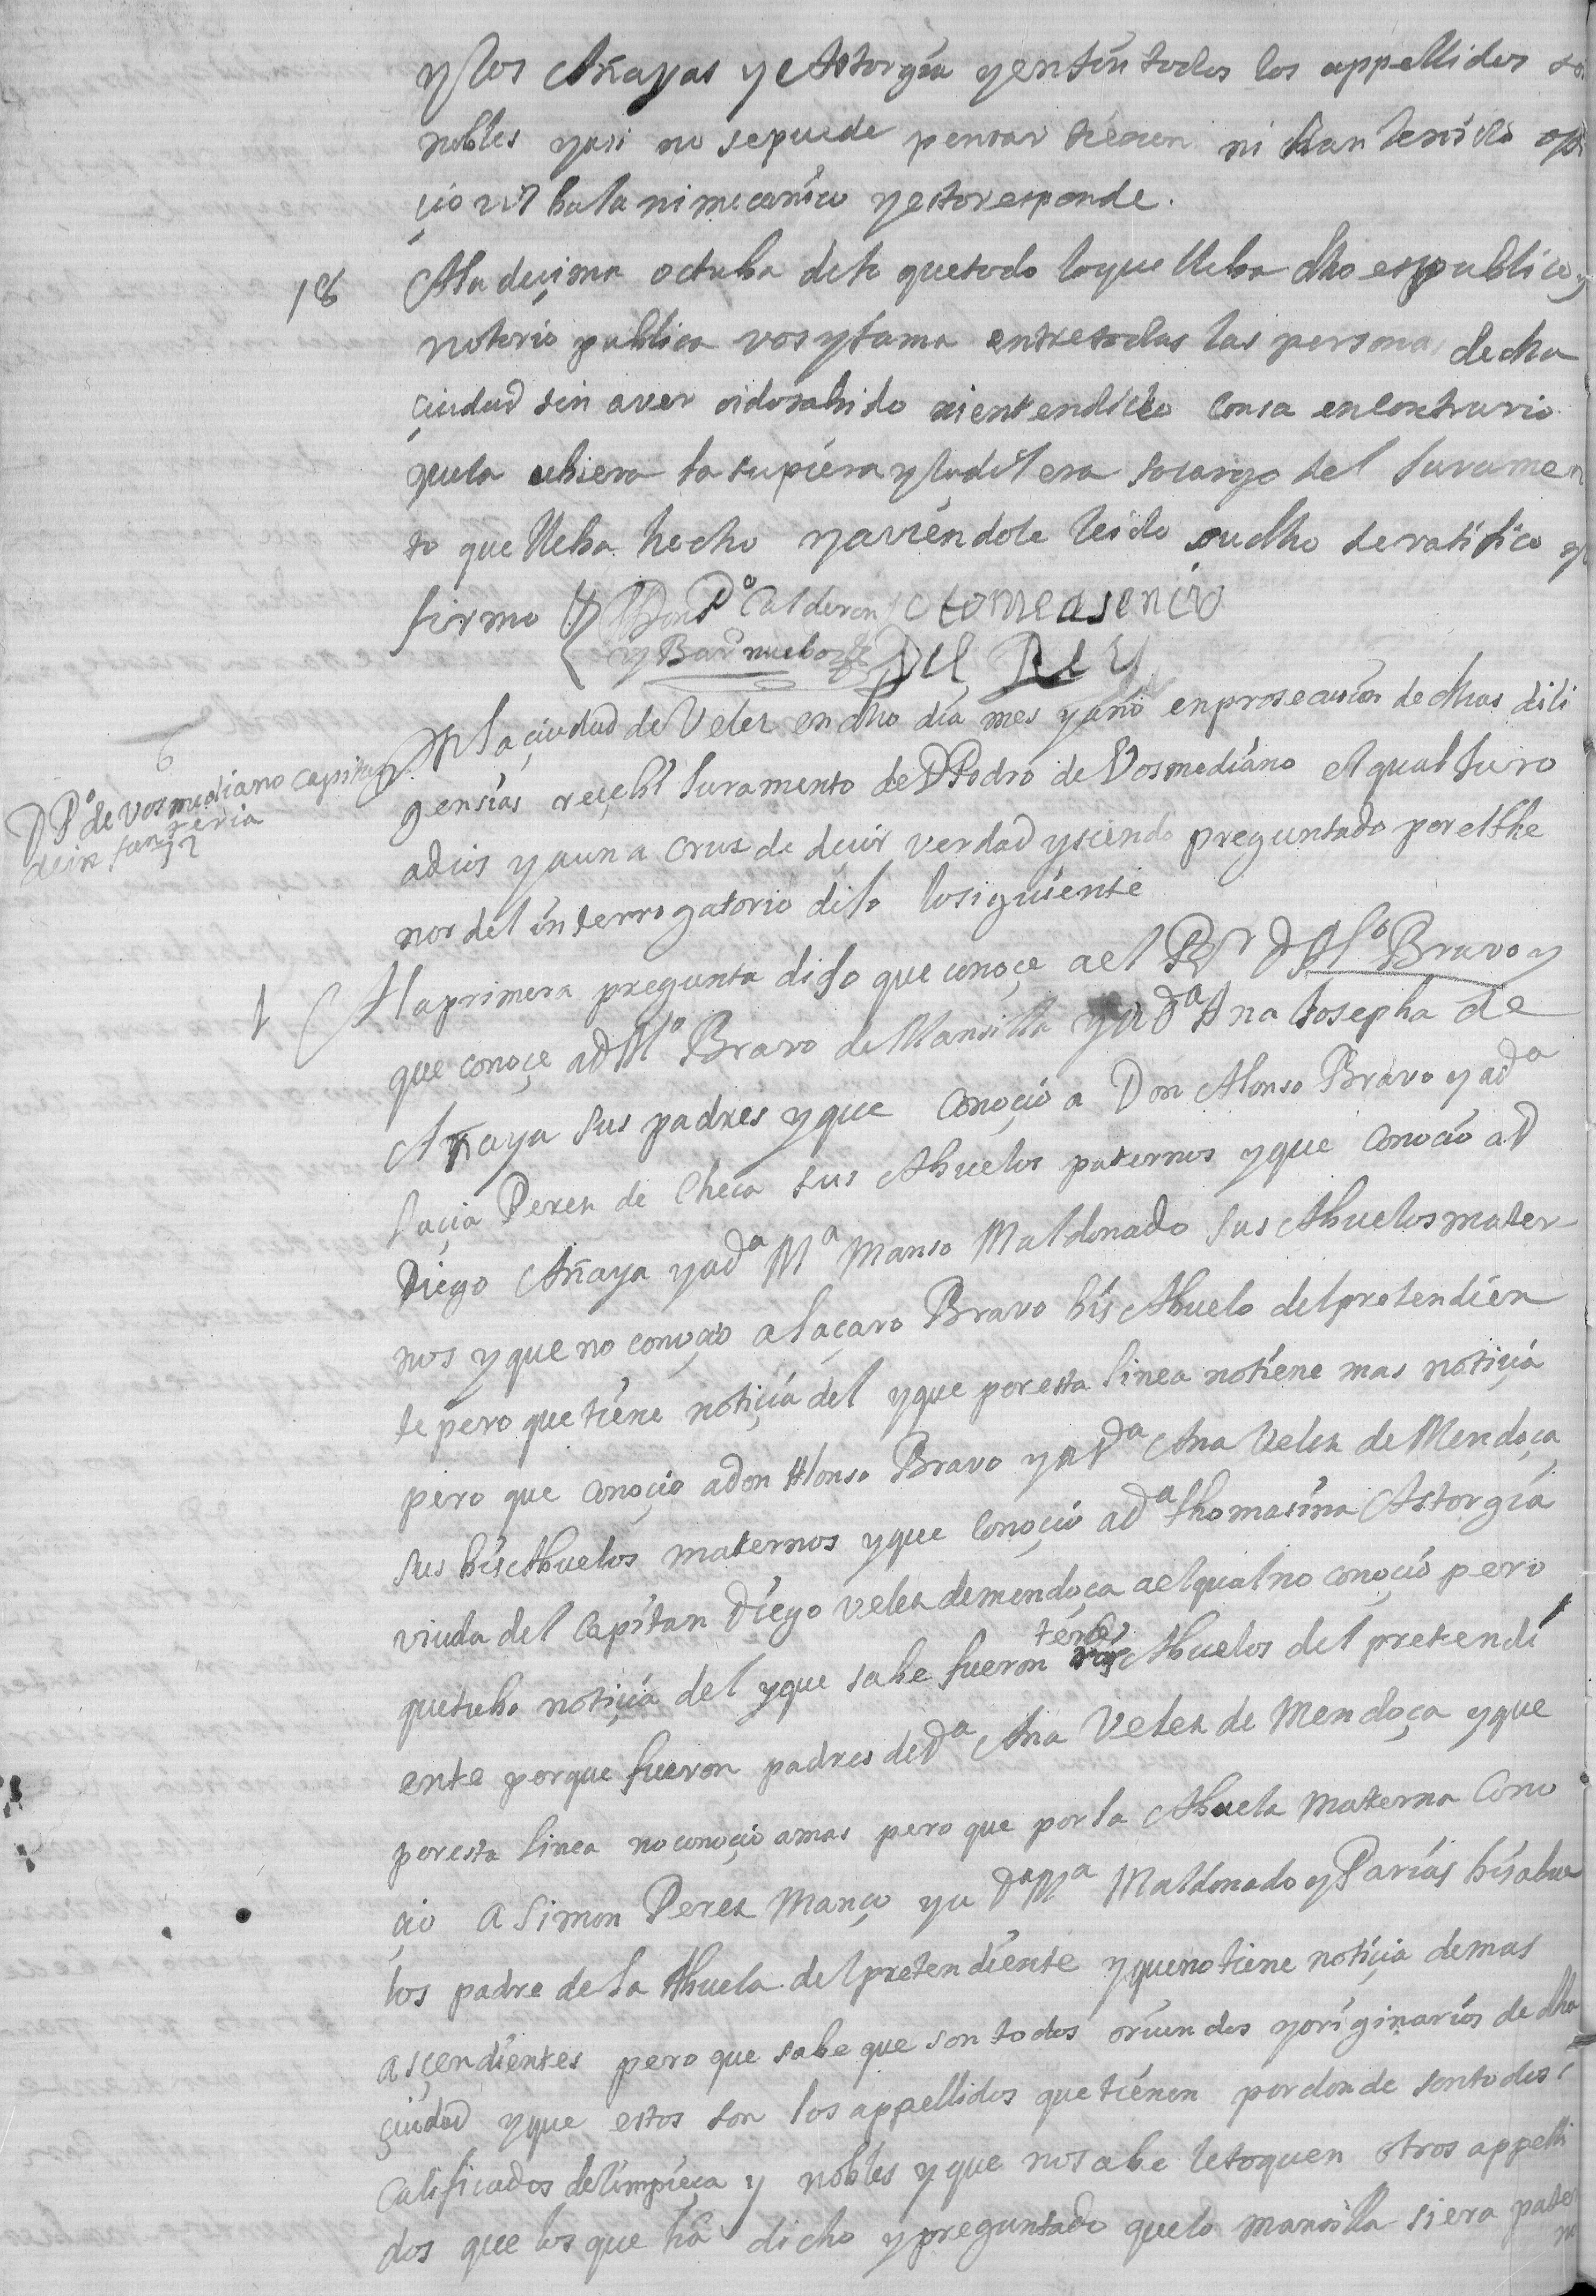 y los Anayas y Astorga y en fin todos los appellidos so
nobles y asi no se puede pensar tienen ni han tenido ofi
çio vil baxa ni mecanico y esto responde.
18 A la deçima octaba dixo que todo lo que lleba dho es publico y
notorio publica vos y fama entre todas las personas de dha
çiudad sin aver oido sabido ni entendido cossa en contrario
que la ubiera la supiera y la dixera so cargo del Juramen
to que lleba hecho y aviéndole leido su dho se ratifico y
firmo Don Po Calderon tome asencio
y Bar nuebo del Rey
En la çiudad de Velez en dho dia mes y año en prosecusion de dhas dili
6
D Po de vosmediano capitan
de infanteria
52
gensias reçebi Juramento de D Pedro de Vosmediano el qual Juro
a dios y a una cruz de deçir verdad y siendo preguntado por el the
nor del interrogatorio dixo lo siguiente
1 A la primera pregunta dixo que conoçe a el Br D Alo Bravo y
que conoçe a D Alo Bravo de Mansilla y a Da Ana Josepha de
Anaya sus padres y que conoçio a Don Alonso Bravo y a da
Luçia Perez de Checa sus Abuelos paternos y que conoçio a D
Diego Anaya y a da Ma Manso Maldonado sus Abuelos mater
nos y que no conoçio a Laçaro Bravo bis Abuelo del pretendien
te pero que tiene notiçia del y que por esta linea no tiene mas notiçia
pero que conoçio a don Alonso Bravo y a Da Ana Velez de Mendoça
sus bis Abuelos maternos y que conoçio a da thomasina Astorga
viuda del Capitan Diego Velez de mendoça a el qual no conoçio pero
que tubo notiçia del y que sabe fueron terçeros Abuelos del pretendi
ente porque fueron padres de Da Ana Velez de Mendoça y que
por esta linea no conoçio a mas pero que por la Abuela materna Cono
çio a Simon Perez Manço y a Da Ma Maldonado y Parias bisabue
los padre de la Abuela del pretendiente y que no tiene notiçia de mas
asçendientes pero que sabe que son todos oriundos y originarios de dha
çiudad y que estos son los appellidos que tienen por donde son todos
Calificados de limpieça y nobles y que no sabe le toquen otros appelli
dos que los que ha dicho y preguntado que lo mansilla si era pater
no